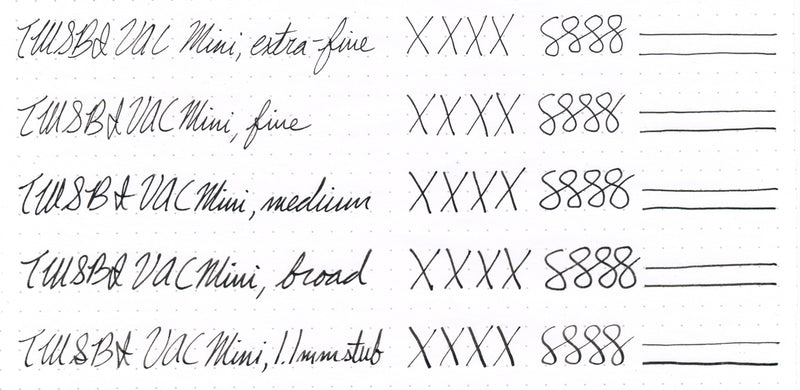 TWSBI VAC Mini, extra-fine XXXX 8888
TWSBI VAC Mini, fine XXXX 8888
TWSBI VAC Mini, medium XXXX 8888
TWSBI VAC Mini, broad XXXX 8888
TWSBI VAC Mini, 1.1mm stub XXXX 8888